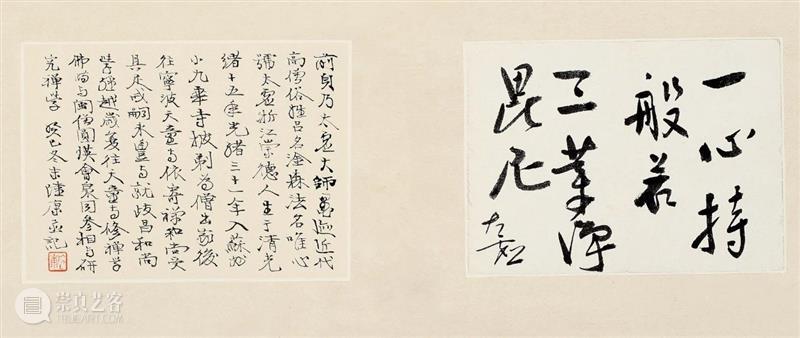 一心持
般若
三業淨
毘尼
太虛
前頁乃太虛大師墨迹近代
高僧俗姓呂名淦森法名唯心
號太虛浙江崇德人生于清光
緒十五年光緒三十一年入蘇州
小九華寺披剃為僧出家後
往寧波天童寺依寄禪和尚受
具足戒嗣永豐寺就歧昌和尚
學經越歲复往天童寺修禪學
佛嗣与閩僧圓瑛會泉同參相与研
究禪學 癸巳冬 記
崇真艺客
TRUEART.COM